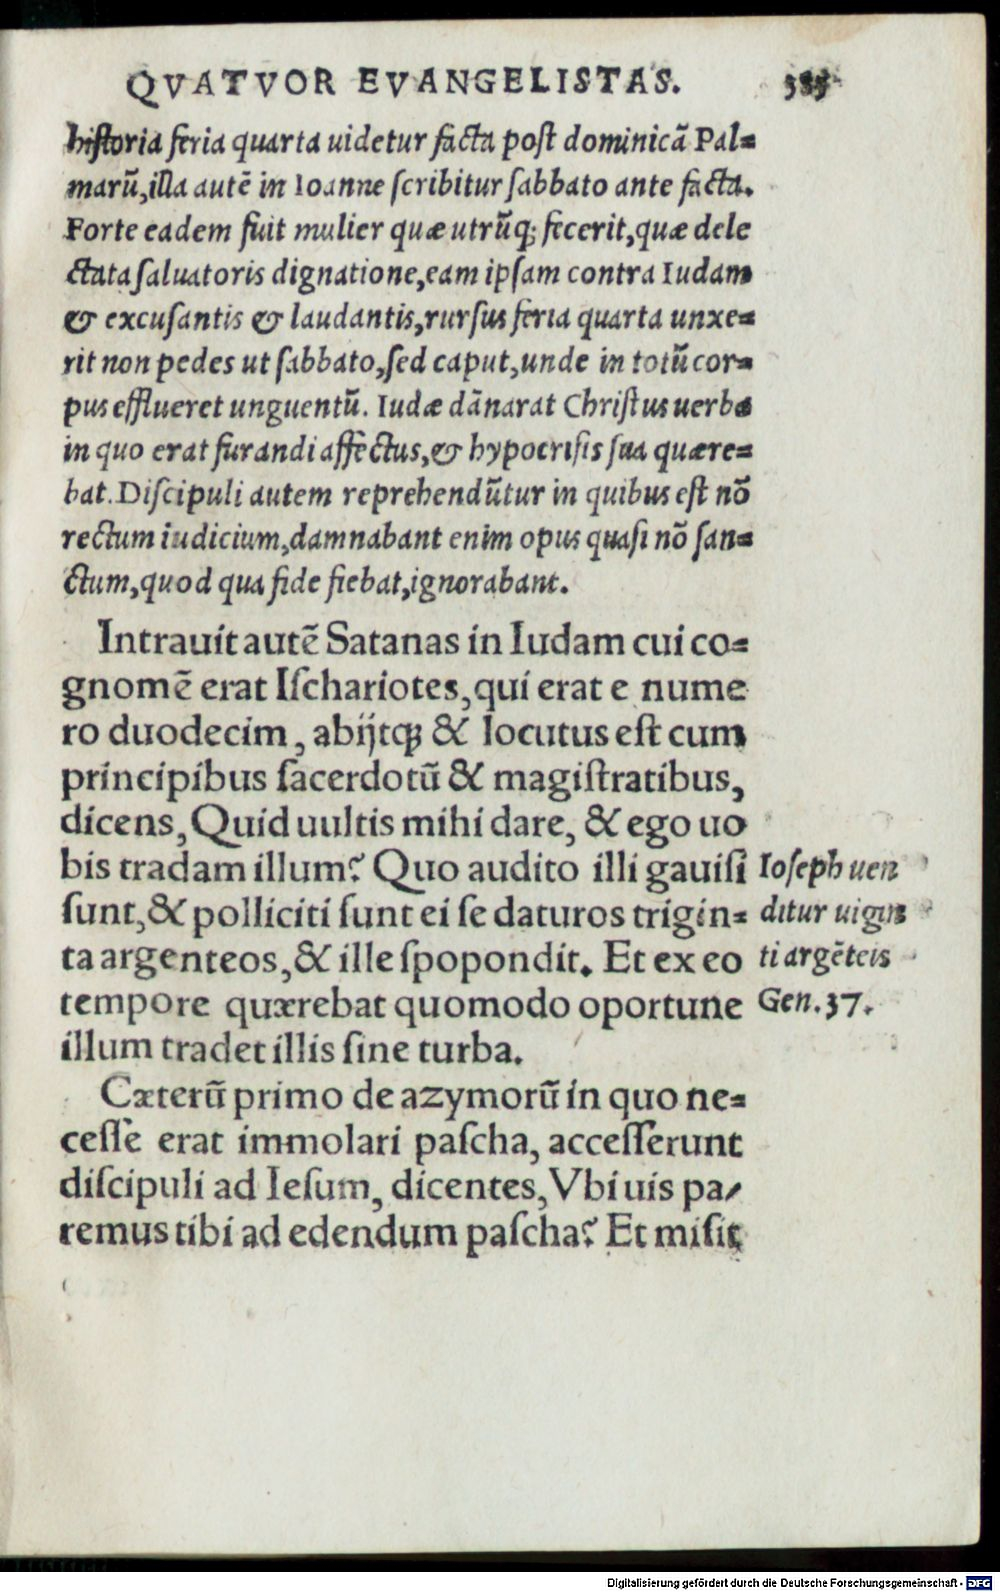 QVATVOR EVANGELISTAS.
historia feria quarta uidetur facta post dominicā Pal=
marū, illa autē in Ioanne scribitur sabbato ante facta.
Forte eadem fuit mulier quæ utrūq; fecerit, quæ dele
ctata saluatoris dignatione, eam ipsam contra Iudam
& excusantis & laudantis, rursus feria quarta unxe=
rit non pedes ut sabbato, sed caput, unde in totū cor=
pus efflueret unguentū. Iudæ dānarat Christus uerba
in quo erat furandi affectus, & hypocrisis sua quære=
bat. Discipuli autem reprehendūtur in quibus est nō
rectum iudicium, damnabant enim opus quasi nō san=
ctum, quod qua fide fiebat, ignorabant.
Intrauit autē Satanas in Iudam cui co=
gnomē erat Ischariotes, qui erat e nume
ro duodecim, abijtq; & locutus est cum
principibus sacerdotū & magistratibus,
dicens, Quid uultis mihi dare, & ego uo
bis tradam illum? Quo audito illi gauisi
sunt, & polliciti sunt ei se daturos trigin=
ta argenteos, & ille spopondit. Et ex eo
tempore quærebat quomodo oportune
illum tradet illis sine turba.
Ioseph uen
ditur uigin
ti argēteis
Gen. 37.
Cæterū primo de azymorū in quo ne=
cesse erat immolari pascha, accesserunt
discipuli ad Iesum, dicentes, Vbi uis pa/
remus tibi ad edendum pascha? Et misit
Digitalisierung gefördert durch die Deutsche Forschungsgemeinschaft - DFG